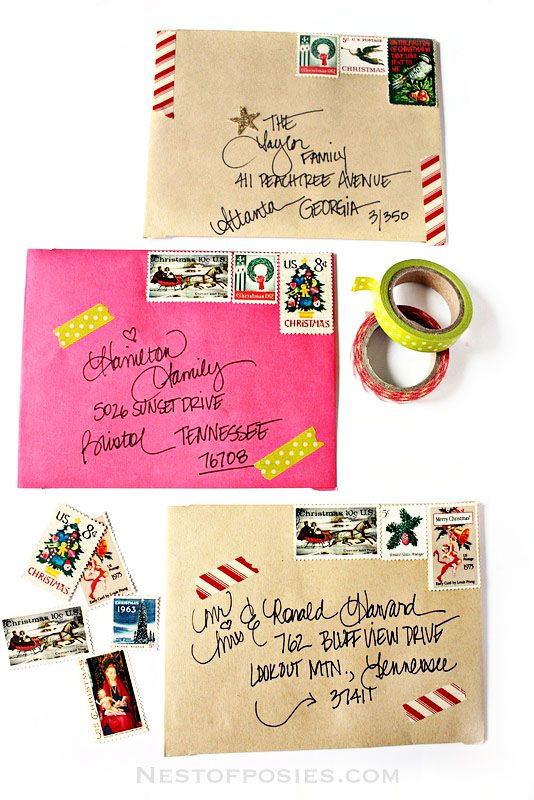 5c U.S. POSTAGE
Christmas
CHRISTMAS
THE
Saylor
FAMILY
411 PEACHTREE AVENUE
Atlanta GEORGIA 31350
Christmas 10c U.S.
US 8¢
Christmas
CHRISTMAS
Hamilton
Family
5026 SUNSET DRIVE
Bristol TENNESSEE
76708
Christmas 10c U.S.
5¢
Merry Christmas!
US
1975
Mr & Ronald Harvard
Mrs
762 BLUFF VIEW DRIVE
LOOKOUT MTN., Tennessee
37417
US 8¢
CHRISTMAS
US
1975
Christmas 10c U.S.
CHRISTMAS
1963
UNITED STATES 5c
US CHRISTMAS
NESTOFPOSIES.COM